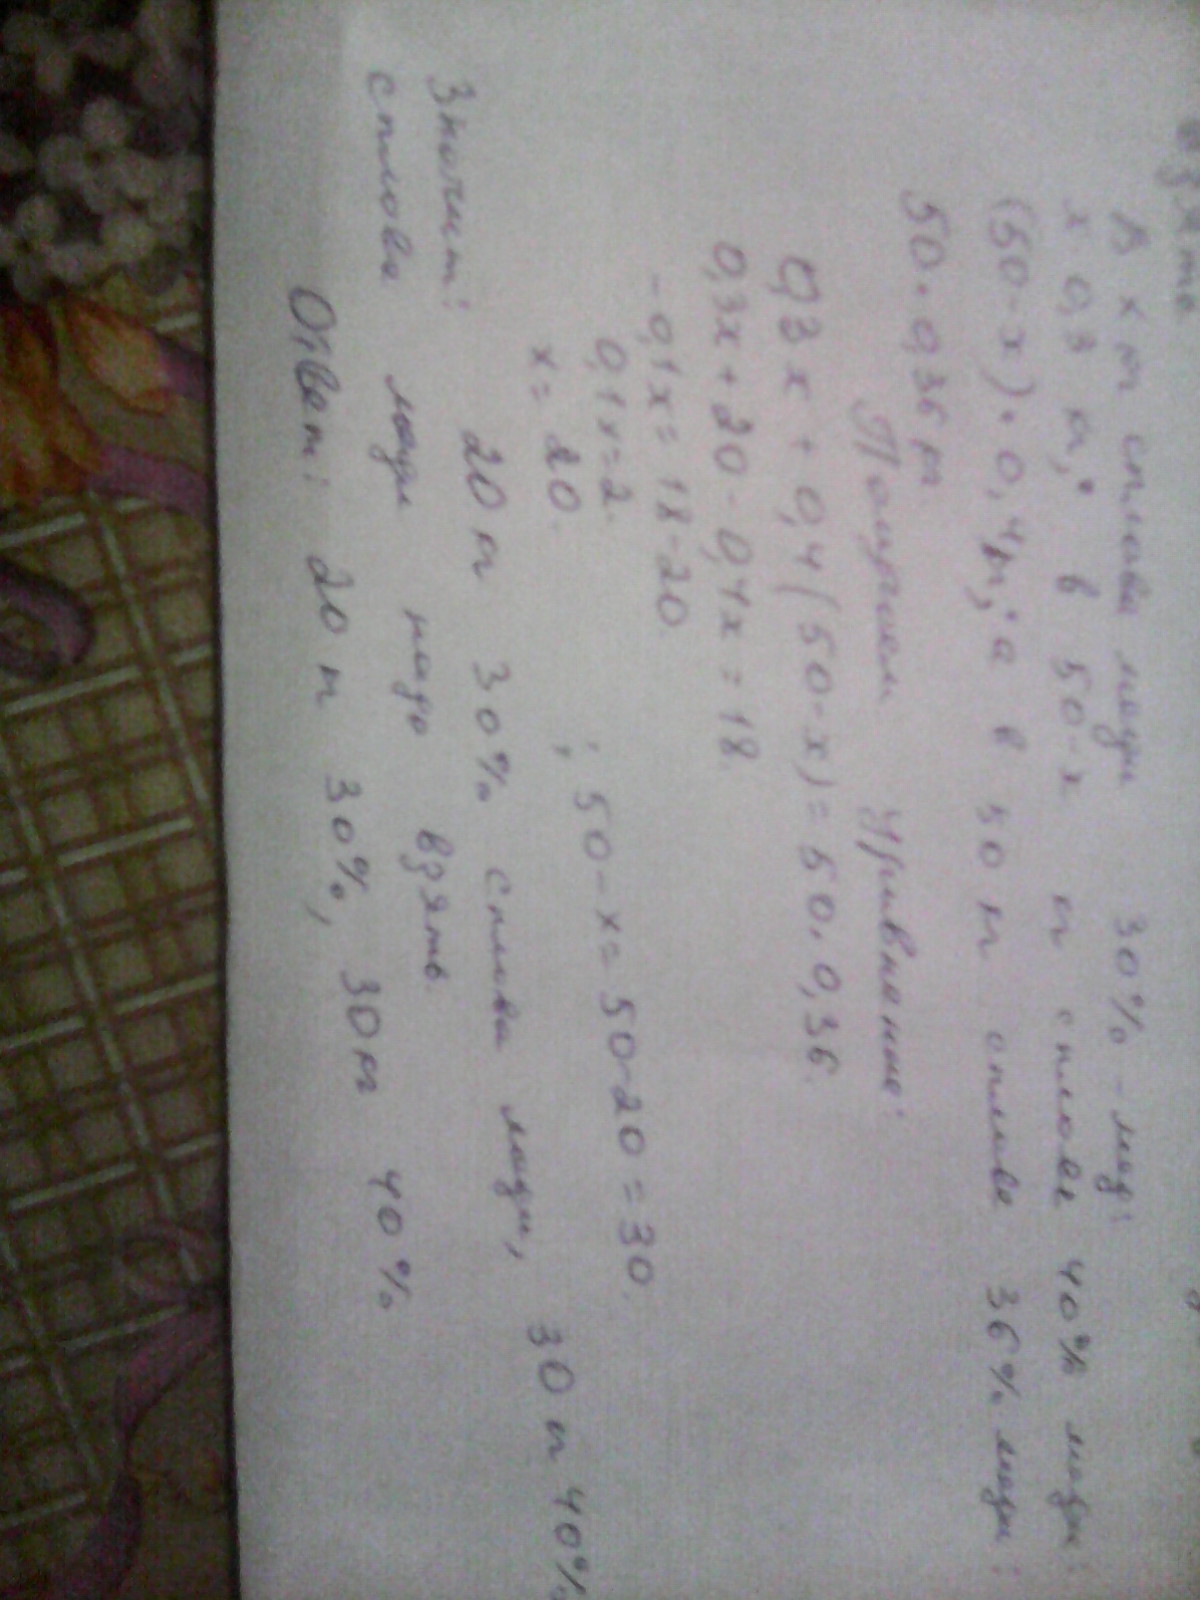 взять
В х т сплава меди 30% - мед:
х 0,3 т; в 50-х т сплаве 40% меди:
(50-х)·0,4т; а в 50 т сплаве 36% меди:
50·0,36 т
Получаем уравнение:
0,3х + 0,4(50-х) = 50·0,36.
0,3х + 20 - 0,4х = 18.
-0,1х = 18-20.
0,1х=2. ; 50-х=50-20=30.
х=20. ;
Значит: 20 т 30% сплава меди, 30 т 40%
сплава меди надо взять.
Ответ: 20 т 30%, 30т 40%